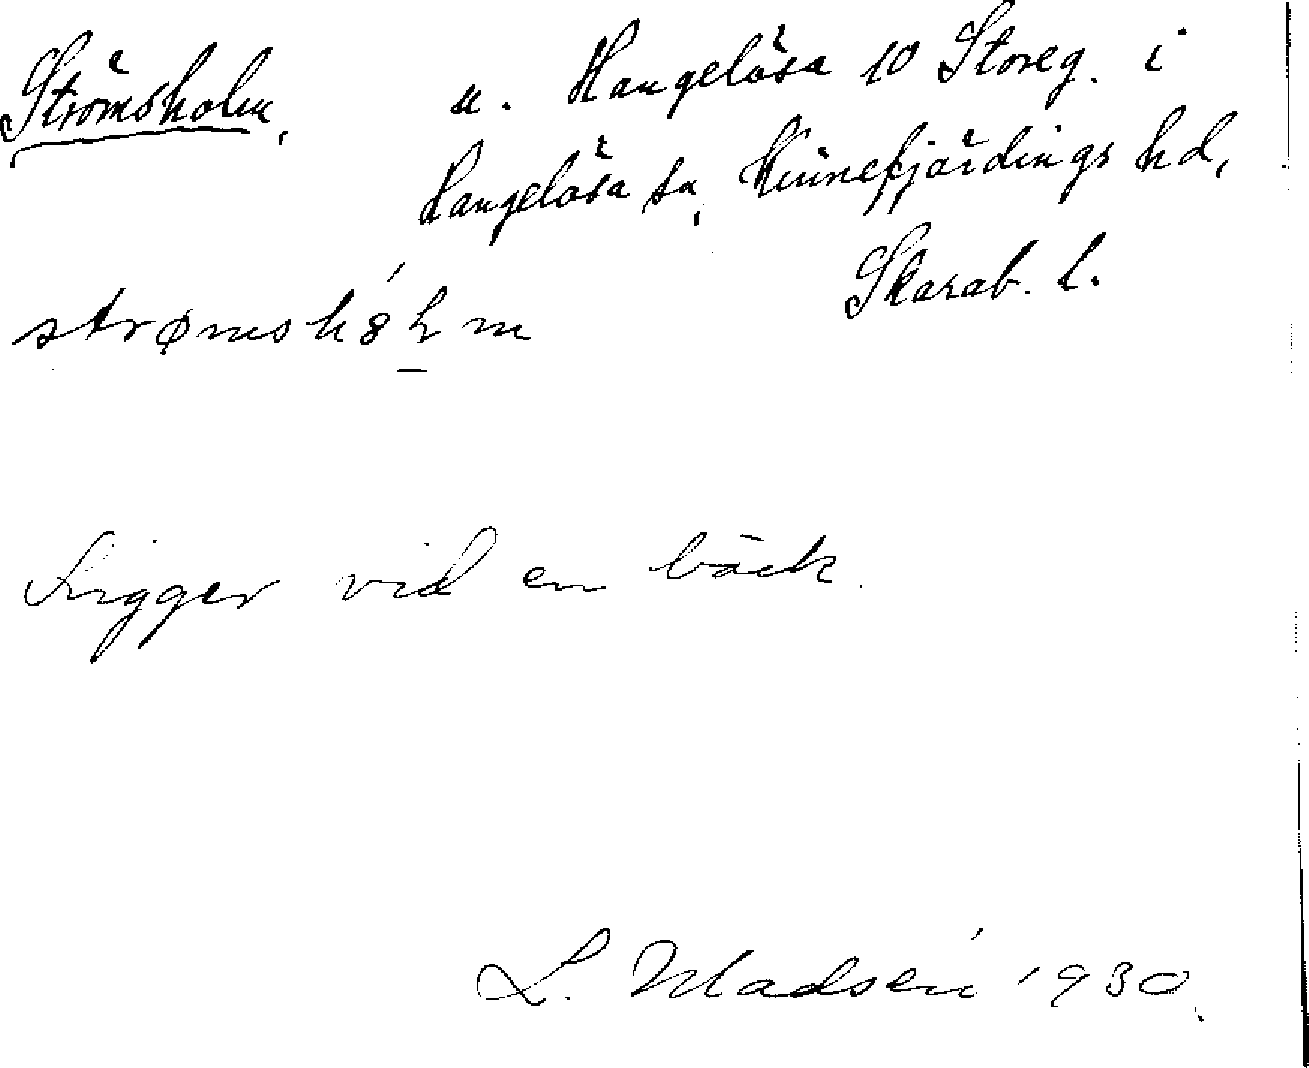 Strömsholm, u. Hangelösa 10 Storeg. i
Hangelösa sn, Kinnefjärdings hd,
Skarab. l.
strømshólm
Ligger vid en bäck.
L. Madsén 1930.